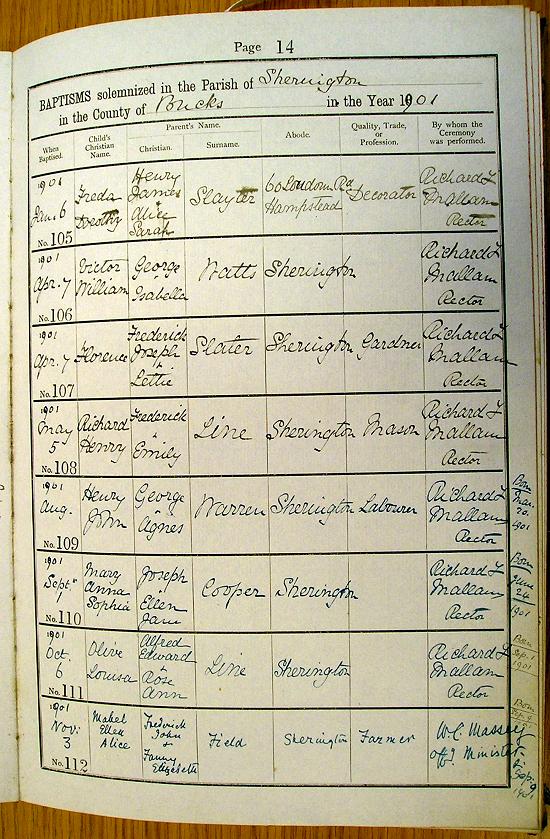 Page 14
BAPTISMS solemnized in the Parish of Sherington
in the County of Bucks in the Year 1901
When Baptised.
Child's Christian Name.
Parent's Name.
Christian.
Surname.
Abode.
Quality, Trade, or Profession.
By whom the Ceremony was performed.
1901
Jan. 6
No. 105
Freda
Dorothy
Henry
James
Alice
Sarah
Slayter
60 Loudoun Rd
Hampstead
Decorator
Richard L
Mallam
Rector
1901
Apr. 7
No. 106
Victor
William
George
Isabella
Watts
Sherington
Richard L
Mallam
Rector
1901
Apr. 7
No. 107
Florence
Frederick
Joseph
+
Lettie
Slater
Sherington
Gardner
Richard L
Mallam
Rector
1901
May
5
No. 108
Richard
Henry
Frederick
+
Emily
Line
Sherington
Mason
Richard L
Mallam
Rector
1901
Aug.
No. 109
Henry
John
George
+
Agnes
Warren
Sherington
Labourer
Richard L
Mallam
Rector
Born
Mar.
20
1901
1901
Sept.
1
No. 110
Mary
Anna
Sophia
Joseph
+
Ellen
Jane
Cooper
Sherington
Richard L
Mallam
Rector
Born
June
24
1901
1901
Oct
6
No. 111
Olive
Louisa
Alfred
Edward
+
Rose
Ann
Line
Sherington
Richard L
Mallam
Rector
Born
Sep. 1
1901
1901
Nov:
3
No. 112
Mabel
Ellen
Alice
Frederick
John
+
Fanny
Elizabeth
Field
Sherington
Farmer
W. C. Massey
offg. Minister
Born
Sep. 9
1901